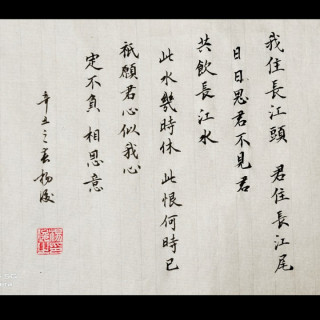 我住長江頭 君住長江尾
日日思君不見君
共飲長江水
此水幾時休 此恨何時已
祇願君心似我心
定不負 相思意
辛丑之